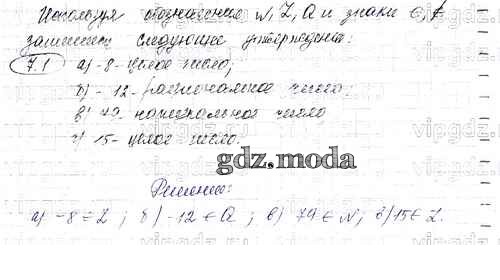 Используя обозначения N, Z, Q и знаки ∈, ∉
запишите следующие утверждения:
7.1 а) -8- целое число;
б) -12- рациональное число;
в) 79- натуральное число
г) 15- целое число.
gdz.moda
Решение:
а) -8 ∈ Z ; б) -12 ∈ Q ; в) 79 ∈ N; г) 15 ∈ Z.